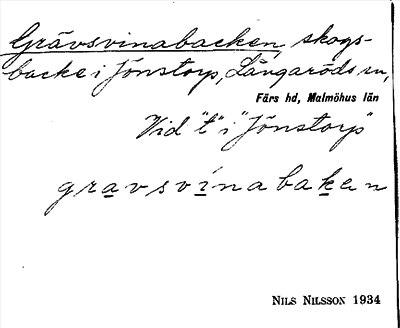 Grävsvinabacken, skogs-
backe i Jönstorp, Långaröds sn,
Färs hd, Malmöhus län
Vid "t" i "Jönstorp"
gravsvinabaken
NILS NILSSON 1934